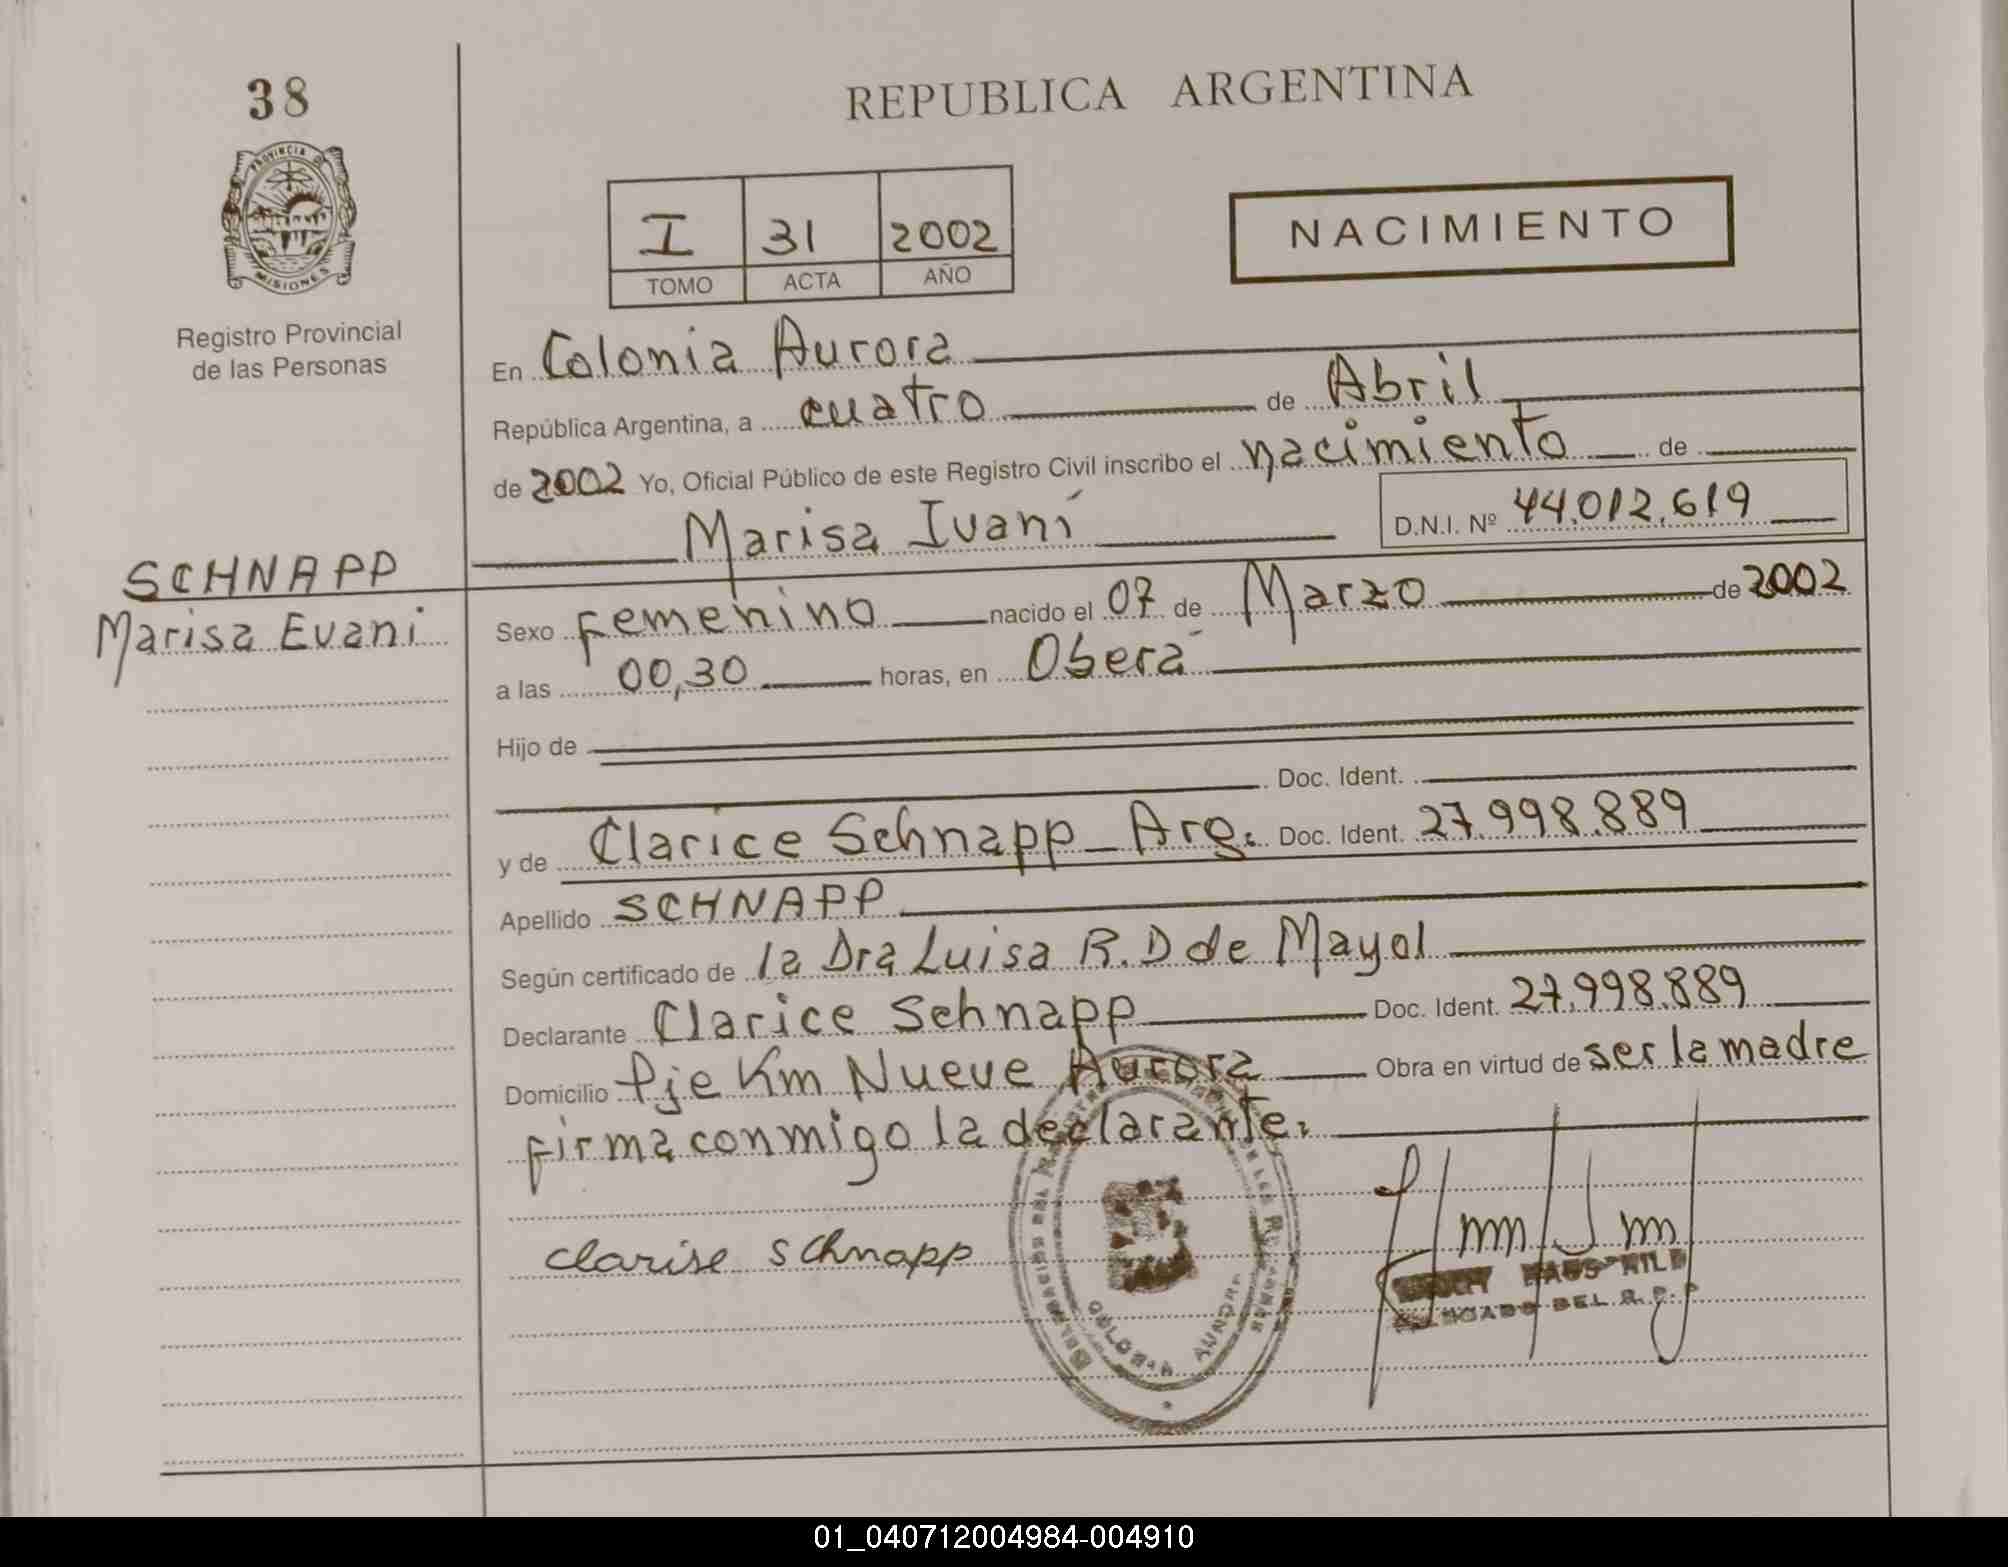 38
REPUBLICA ARGENTINA
PROVINCIA D
MISIONES
Registro Provincial
de las Personas
I 31 2002
TOMO ACTA AÑO
NACIMIENTO
En Colonia Aurora
República Argentina, a cuatro de Abril
de 2002 Yo, Oficial Público de este Registro Civil inscribo el nacimiento de
Marisa Ivaní D.N.I. Nº 44.012.619
SCHNAPP
Marisa Evani
Sexo Femenino nacido el 07 de Marzo de 2002
a las 00,30 horas, en Oberá
Hijo de
Doc. Ident.
y de Clarice Schnapp - Arg. Doc. Ident. 27.998.889
Apellido SCHNAPP
Según certificado de la Dra Luisa R. D de Mayol
Declarante Clarice Schnapp Doc. Ident. 27.998.889
Domicilio Pje Km Nueve Aurora Obra en virtud de ser la madre
firma conmigo la declarante.
clarise schnapp
COLONIA AURORA
DEL R. P. P
01_040712004984-004910